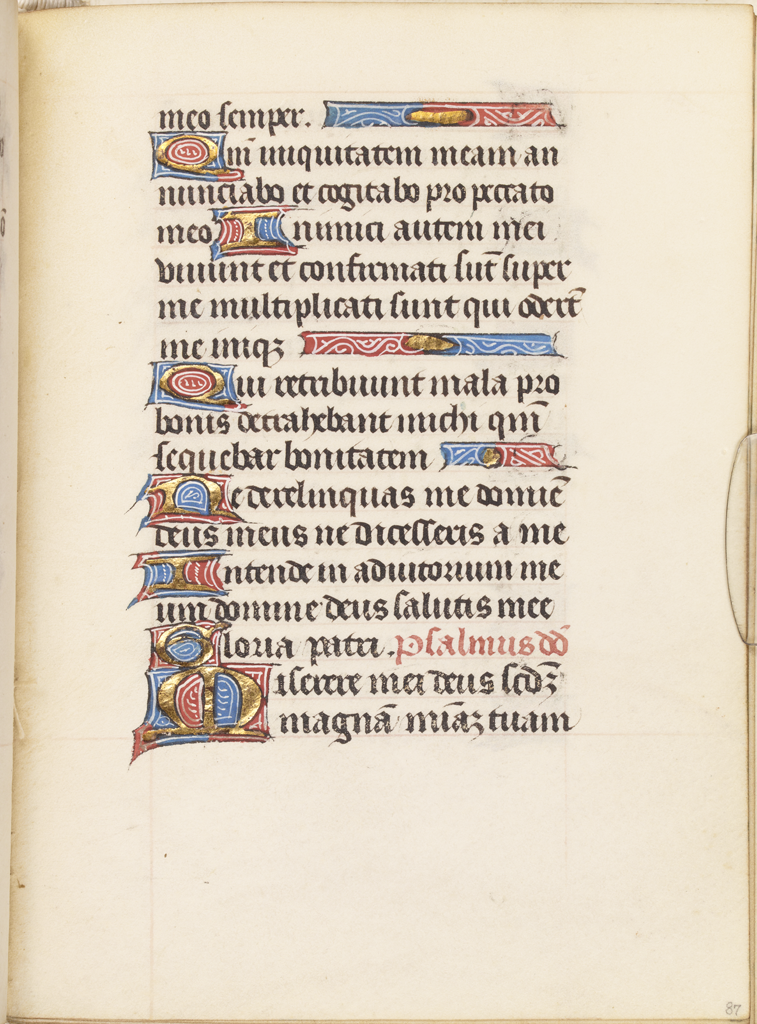 meo semper.
Qm̄ iniquitatem meam an
nunciabo et cogitabo pro peccato
meo Inimici autem mei
viuunt et confirmati sūt super
me multiplicati sunt qui oderūt
me iniqꝫ
Qui retribuunt mala pro
bonis detrahebant michi qm̄
sequebar bonitatem
Ne derelinquas me domiē
deus meus ne dicesseris a me
Intende in adiutorium me
um domine deus salutis mee
Gloria patri. Psalmus dd̄
Miserere mei deus scdꝫ
magnā miāꝫ tuam
87